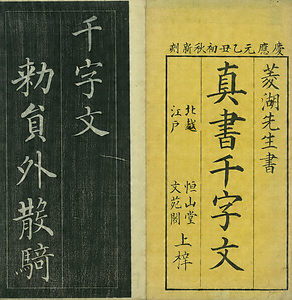 慶應元乙丑初秋新刻
菱湖先生書
真書千字文
北越 恒山堂
江戸 文苑閣
上梓
千字文
勅員外散騎